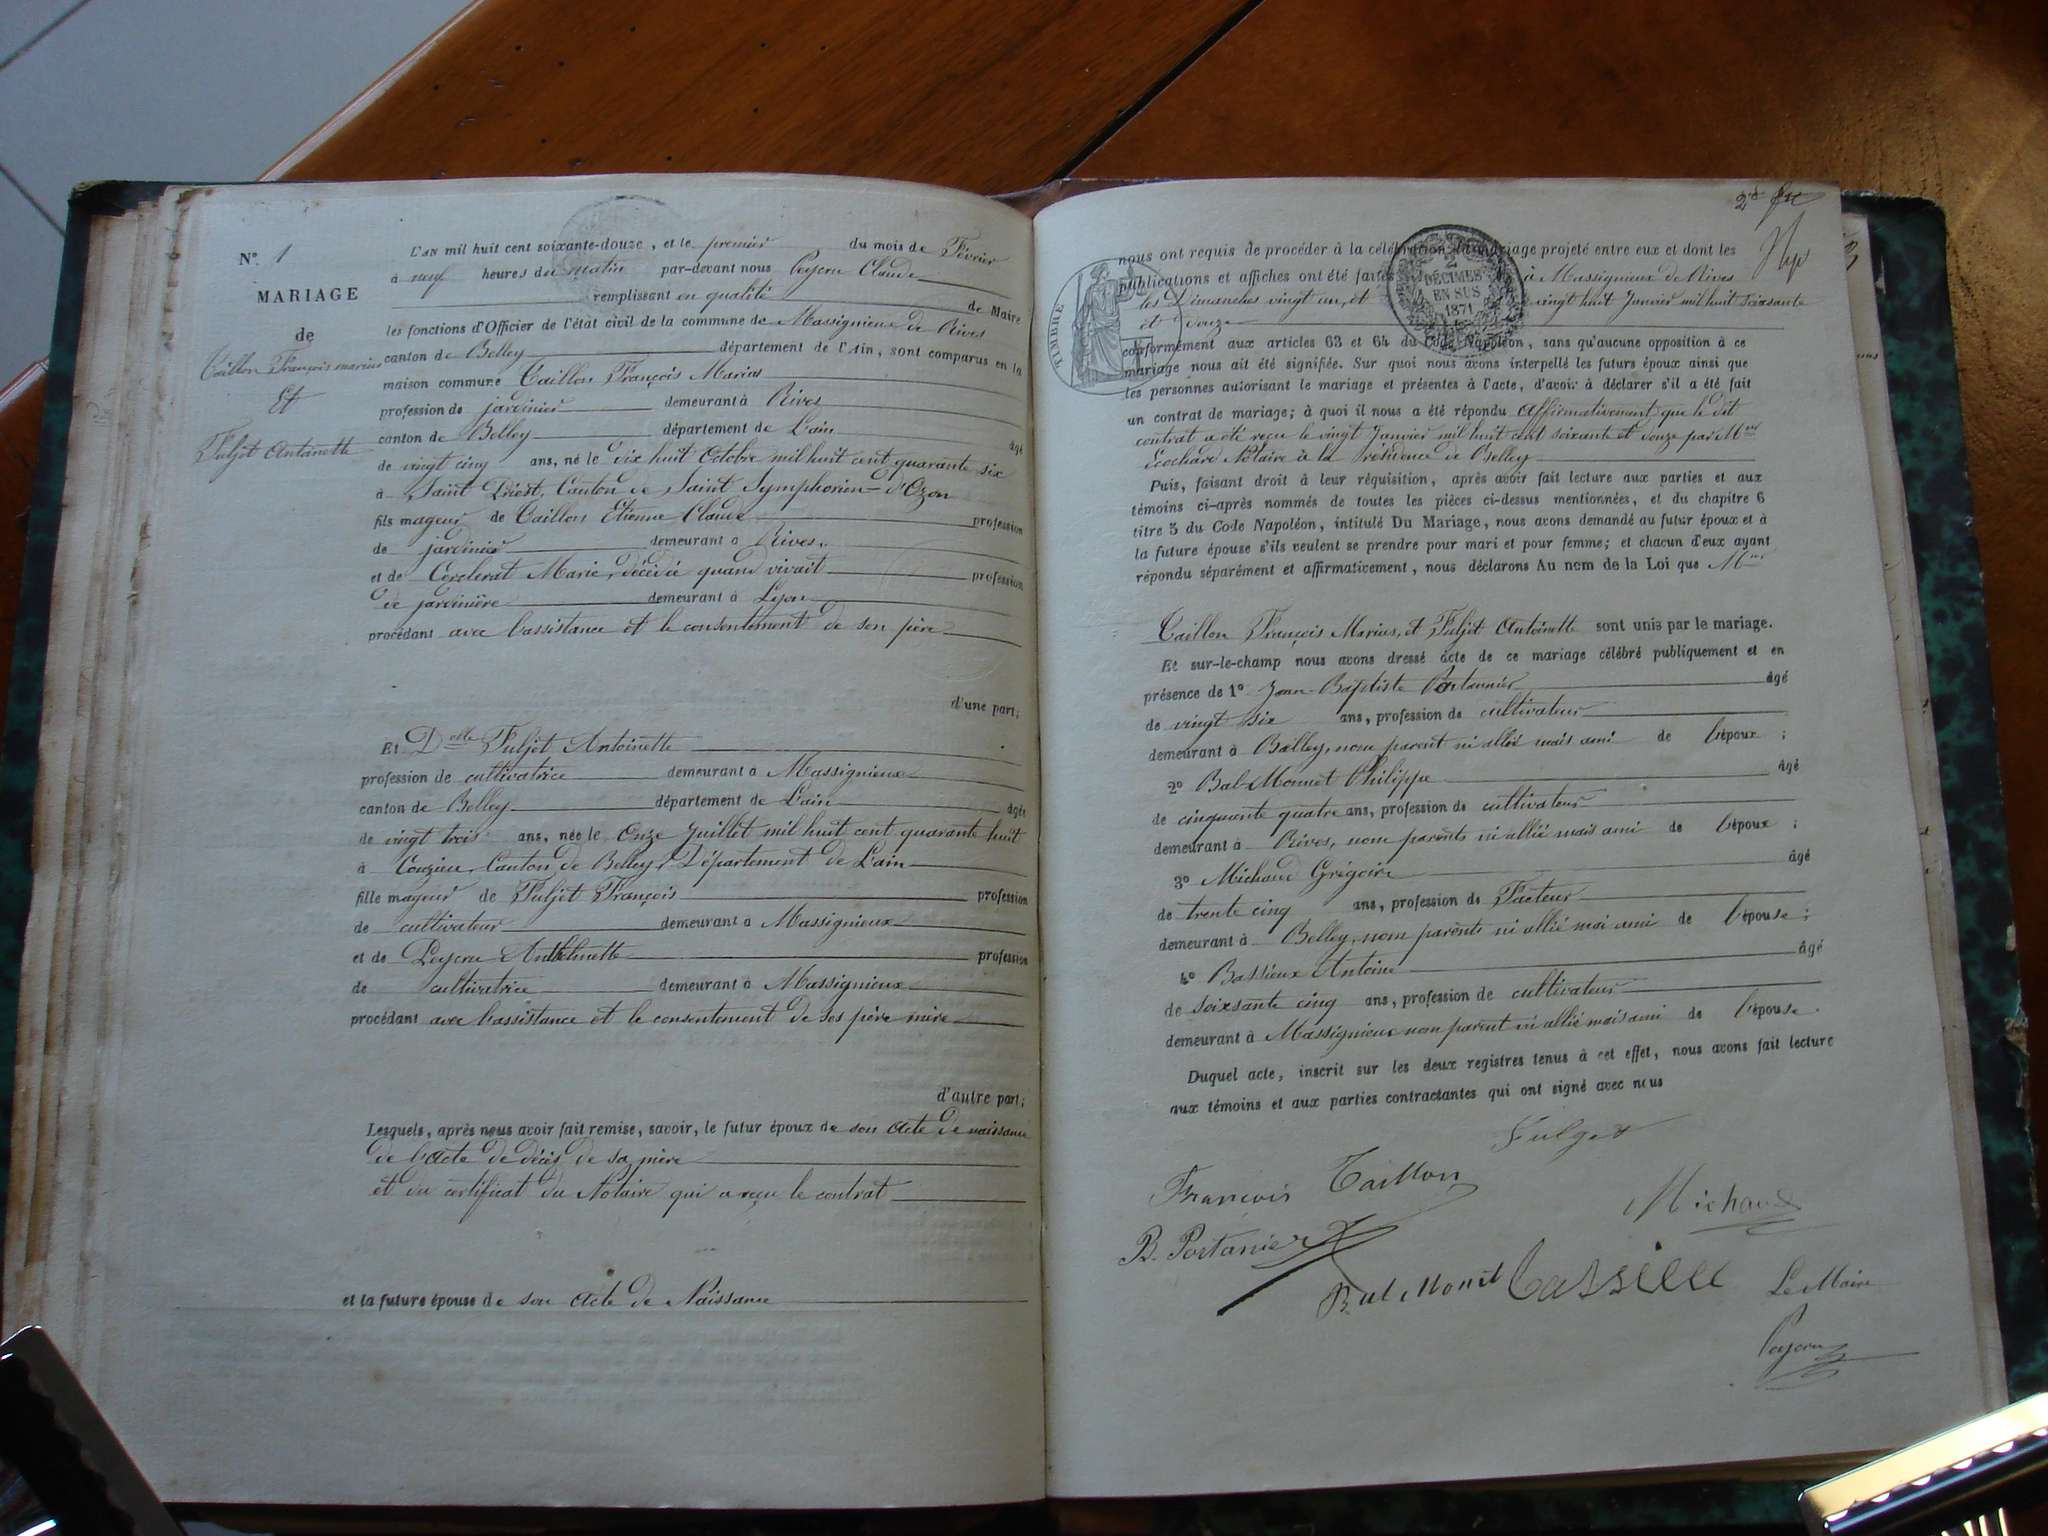 N° 1
MARIAGE
de
Taillon François marius
Et
Fuljet Antoinette
L'AN mil huit cent soixante-douze, et le premier du mois de Février
à neuf heures du matin par-devant nous Peycru Claude
remplissant en qualité de Maire
les fonctions d'Officier de l'état civil de la commune de Massignieux de Rives
canton de Belley département de l'Ain, sont comparus en la
maison commune Taillon François Marius
profession de jardinier demeurant à Rives
canton de Belley département de L'ain âgé
de vingt cinq ans, né le dix huit Octobre mil huit cent quarante six
à Saint Priest, Canton de Saint Symphorien d'Ozon
fils mageur de Taillon Etienne Claude profession
de jardinier demeurant à Rives
et de Marie, décédée quand vivait profession
de jardinière demeurant à Lyon
procédant avec l'assistance et le consentement de son père
d'une part;
Et Delle Fuljet Antoinette
profession de cultivatrice demeurant à Massignieux
canton de Belley département de L'ain âgée
de vingt trois ans, née le Onze Juillet mil huit cent quarante huit
à Conzieu, Canton de Belley, Département de L'ain
fille mageur de Fuljet François profession
de cultivateur demeurant à Massignieux
et de Peycru Anthelmette profession
de cultivatrice demeurant à Massignieux
procédant avec l'assistance et le consentement de ses père mère
d'autre part;
Lesquels, après nous avoir fait remise, savoir, le futur époux de son acte de naissance
de l'acte de décès de sa mère
et du certificat du Notaire qui a reçu le contrat
et la future épouse de son acte de Naissance
2d
nous ont requis de procéder à la célébration du mariage projeté entre eux et dont les
publications et affiches ont été faites à Massignieux de Rives
les Dimanches vingt un, et vingt huit Janvier mil huit soixsante
et douze
TIMBRE
2
DÉCIMES
EN SUS
1871
conformément aux articles 63 et 64 du Code Napoléon, sans qu'aucune opposition à ce
mariage nous ait été signifiée. Sur quoi nous avons interpellé les futurs époux ainsi que
les personnes autorisant le mariage et présentes à l'acte, d'avoir à déclarer s'il a été fait
un contrat de mariage; à quoi il nous a été répondu affirmativement que le dit
contrat a été reçu le vingt Janvier mil huit cent soixante et douze par Mtre
Ecochard Notaire à la Résidence de Belley
Puis, faisant droit à leur réquisition, après avoir fait lecture aux parties et aux
témoins ci-après nommés de toutes les pièces ci-dessus mentionnées, et du chapitre 6
titre 5 du Code Napoléon, intitulé Du Mariage, nous avons demandé au futur époux et à
la future épouse s'ils veulent se prendre pour mari et pour femme; et chacun d'eux ayant
répondu séparément et affirmativement, nous déclarons Au nom de la Loi que
Taillon François Marius, et Fuljet Antoinette sont unis par le mariage.
Et sur-le-champ nous avons dressé acte de ce mariage célébré publiquement et en
présence de 1° Jean-Baptiste Portannier âgé
de vingt six ans, profession de cultivateur
demeurant à Belley, nom parent ni allié mais ami de l'époux;
2° Bal-Monnet Philippe âgé
de cinquante quatre ans, profession de cultivateur
demeurant à Rives, nom parents ni allié mais ami de l'époux;
3° Michaud Grégoire âgé
de trente cinq ans, profession de Facteur
demeurant à Belley, nom parents ni allié mai ami de l'épouse;
4° Bassieux Antoine âgé
de soixsante cinq ans, profession de cultivateur
demeurant à Massignieux non parent ni allié mais ami de l'épouse.
Duquel acte, inscrit sur les deux registres tenus à cet effet, nous avons fait lecture
aux témoins et aux parties contractantes qui ont signé avec nous
Fulget
François Taillon
Michaud
B. Portanier
Bal Monet
Le Maire
Peycru